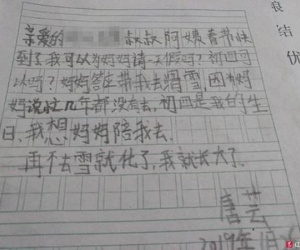 亲爱的 叔叔阿姨春节快
到了我可以为妈妈请一个假吗?初四可
以吗?妈妈答应带我去滑雪,因为妈
妈说忙几年都没有去,初四是我的生
日,我想妈妈陪我去。
再不去雪就化了,我就长大了。
唐芸
2019年1月
良
结
优